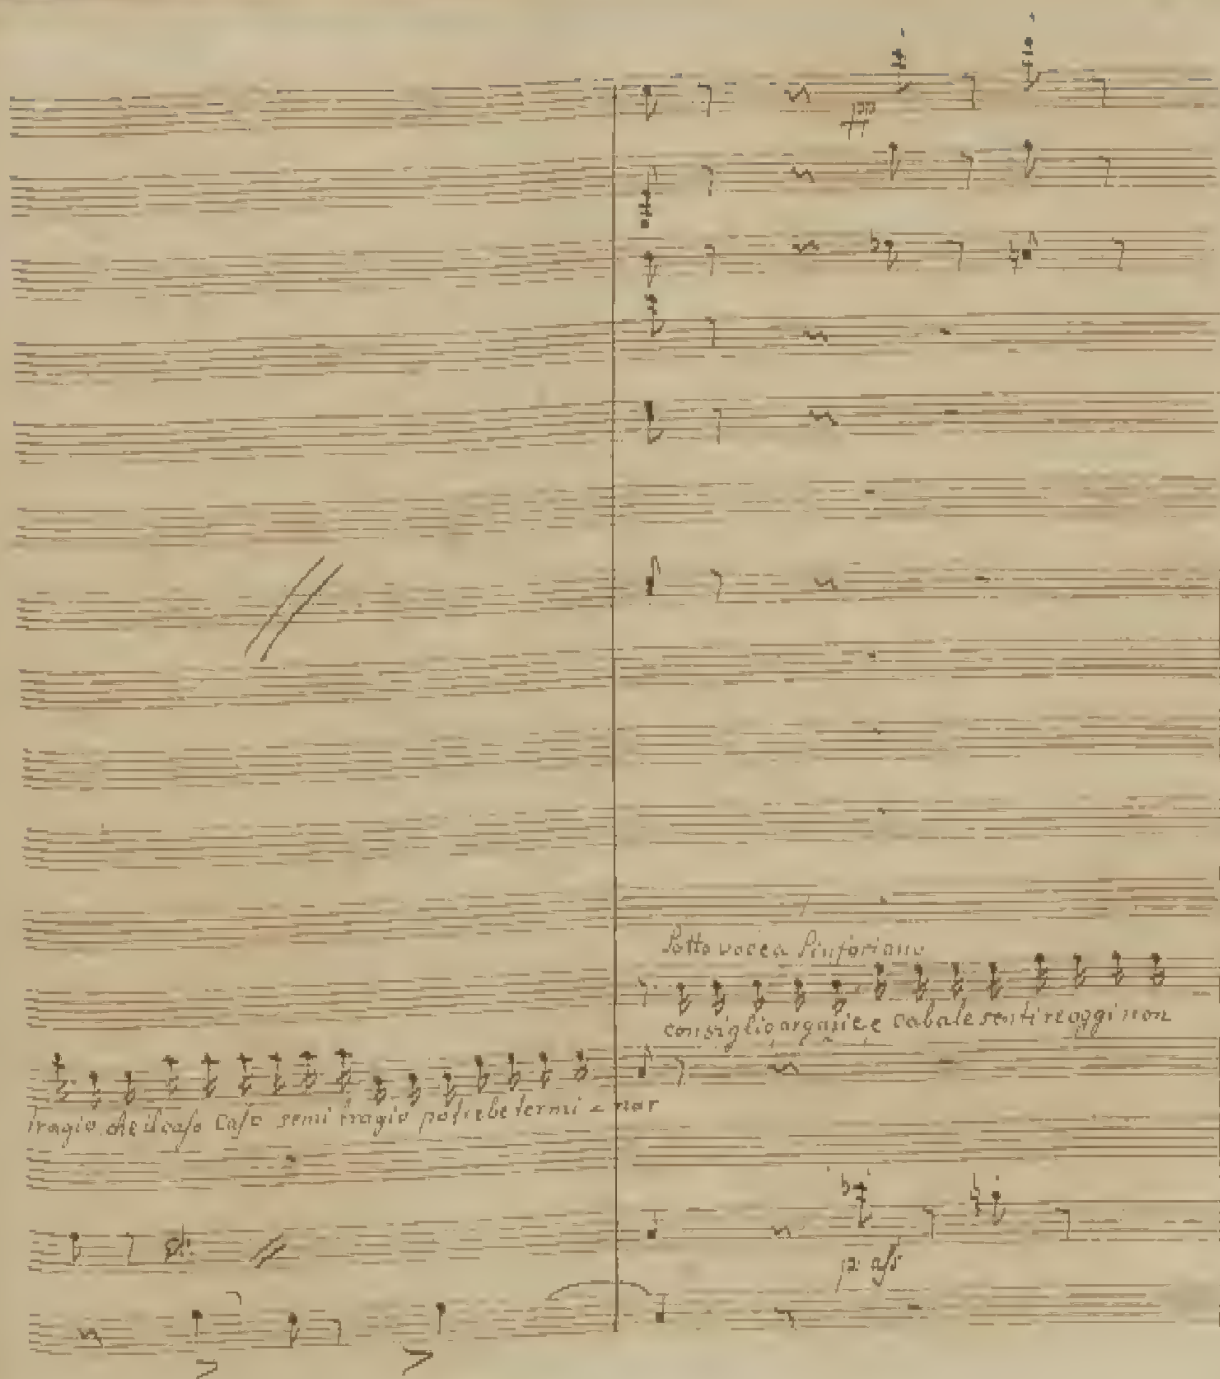 pp
Sotto voce a Sinforiano
consiglio argazie e cabale sentire oggi non
tragio che il caso caso semi tragio potrebe termi - nar
pº ass